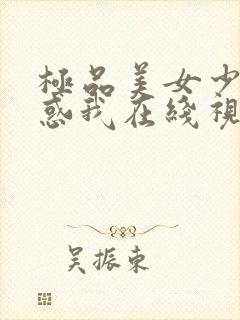 極品美女少
惑我在綫視
吴振東